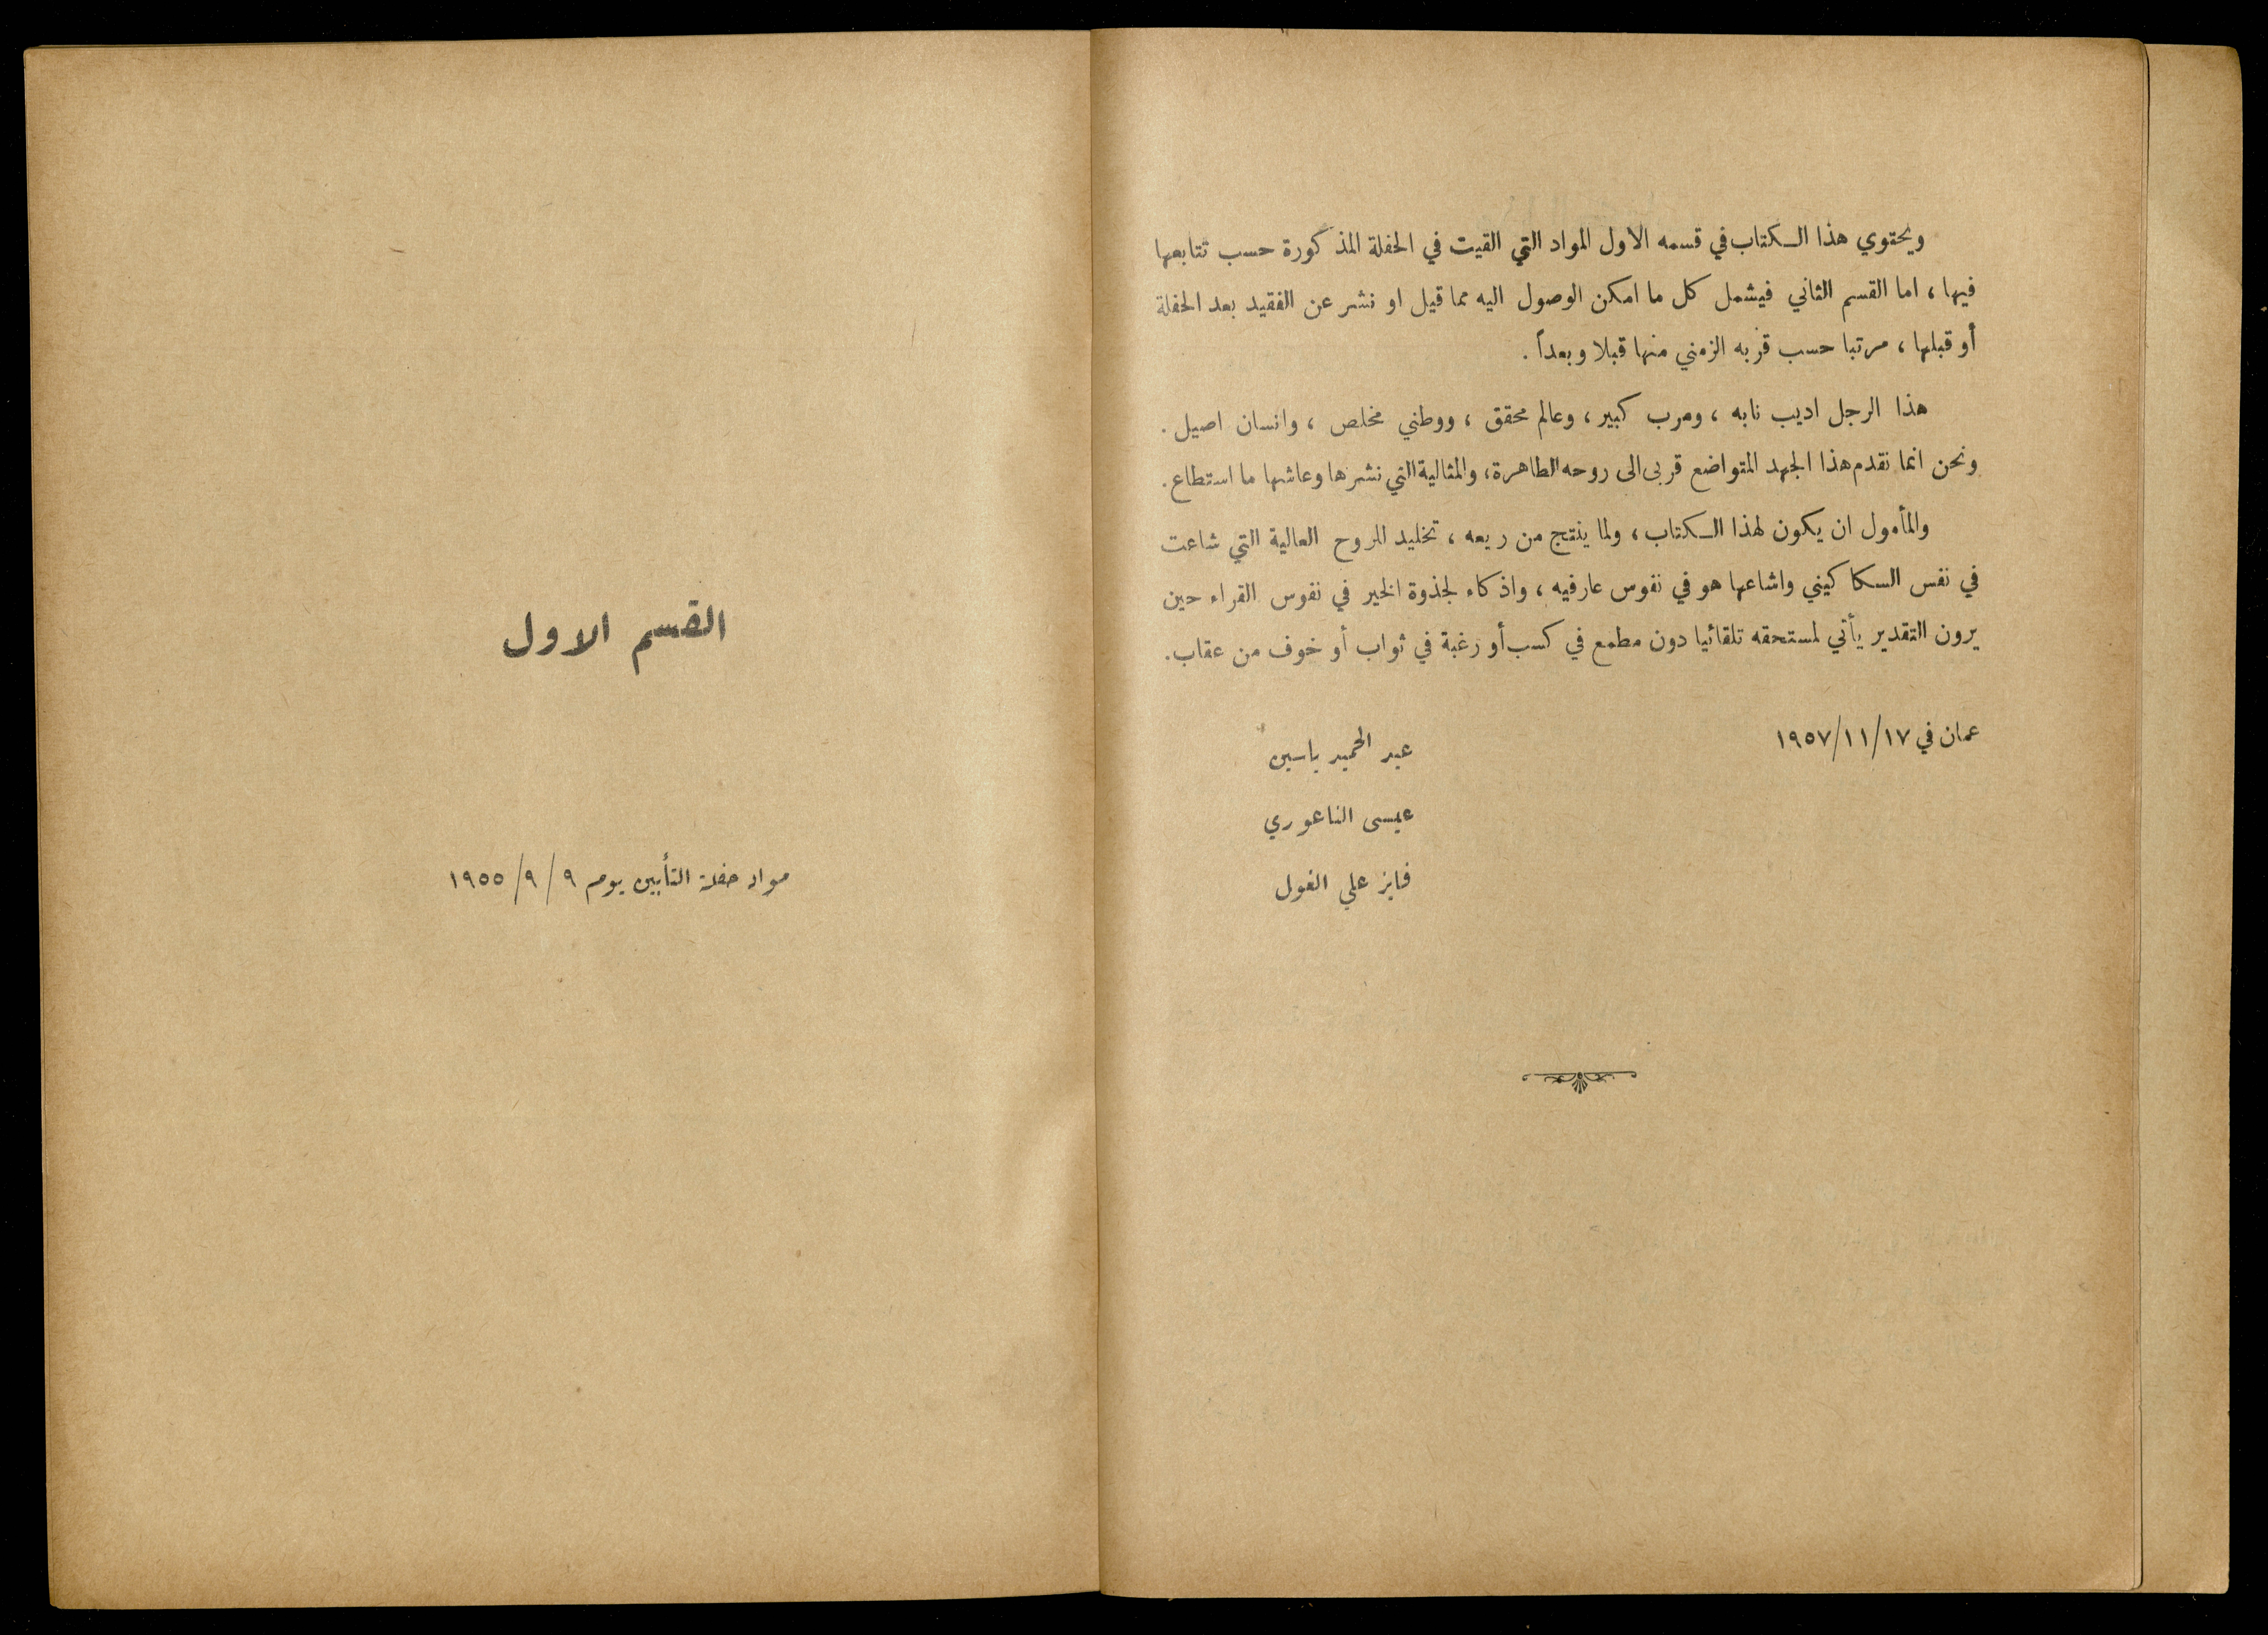 ويحتوي هذا الكتاب في قسمه الاول المواد التي القيت في الحفلة المذكورة حسب تتابعها
فيها ، اما القسم الثاني فيشمل كل ما امكن الوصول اليه مما قيل او نشر عن الفقيد بعد الحفلة
أو قبلها ، مرتبا حسب قربه الزمني منها قبلا وبعداً .
هذا الرجل اديب نابه ، ومرب كبير ، وعالم محقق ، ووطني مخلص ، وانسان اصيل .
ونحن انما نقدم هذا الجهد المتواضع قربى الى روحه الطاهرة ، والمثالية التي نشرها وعاشها ما استطاع .
والمأمول ان يكون لهذا الكتاب ، ولما ينتج من ريعه ، تخليد للروح العالية التي شاعت
في نفس السكاكيني واشاعها هو في نفوس عارفيه ، واذكاء لجذوة الخير في نفوس القراء حين
يرون التقدير يأتي لمستحقه تلقائيا دون مطمع في كسب أو رغبة في ثواب أو خوف من عقاب .
عمان في ١٩٥٧/١١/١٧
عبد الحميد ياسين
عيسى الناعوري
فايز علي الغول
القسم الاول
مواد حفلة التأبين يوم ٩ /٩ /١٩٥٥